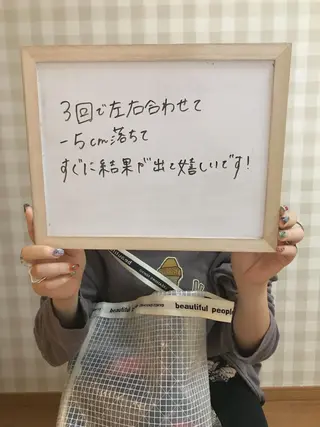 3回で左右合わせて
-5cm落ちて
すぐに結果が出て嬉しいです!
beautiful people